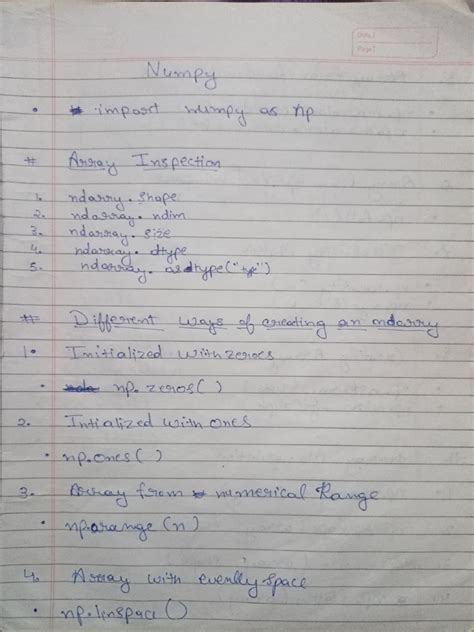 Date
Page
Numpy
• import numpy as np
# Array Inspection
1. ndarry.shape
2. ndarray.ndim
3. ndarray.size
4. ndarray.dtype
5. ndarray.asdtype("type")
# Different ways of creating an ndarry
1. Initialized with zeroes
• np.zeros( )
2. Intialized with ones
• np.ones( )
3. Array from numerical Range
• np.arange(n)
4. Array with evenlly space
• np.linspace()